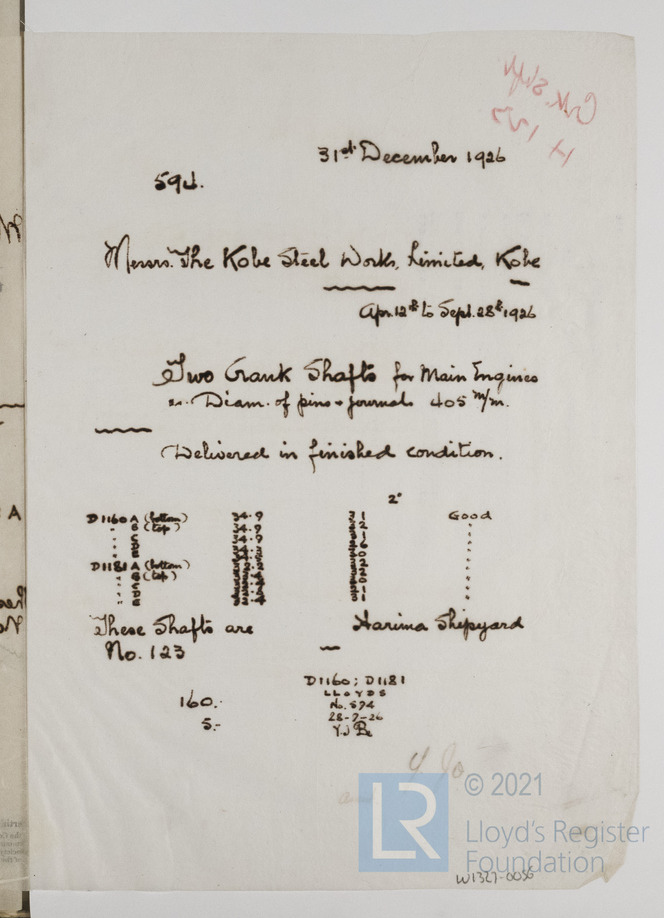 31st December 1926
594.
Messrs. The Kobe Steel Works, Limited, Kobe
Apr. 12th to Sept. 28th 1926
Two Crank Shafts for Main Engines
Diam. of pins & journals 405 m/m.
Delivered in finished condition.
2"
D1160 A (bottom) 34.9 31 Good
" B (top) 34.9 32 "
" C 34.9 31 "
" D "
" E "
D1181 A (bottom) "
" B (top) "
" C "
" D "
" E "
These Shafts are Harima Shipyard
No. 123
D1160; D1181
160.- LLOYDS
No. 594
5.- 28-9-26
Y.J
© 2021
LR Lloyd's Register
Foundation
W1327-0056